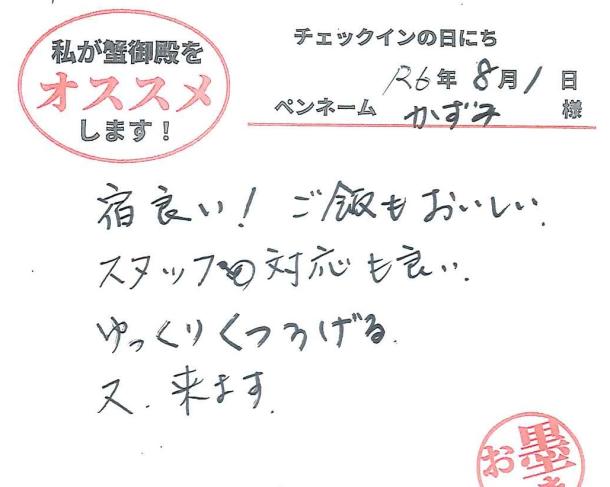 私が蟹御殿を
オススメ
します！
チェックインの日にち
R6年 8月1日
ペンネーム かずみ 様
宿良い！ ご飯もおいしい.
スタッフの対応も良い.
ゆっくりくつろげる.
又. 来ます.
お墨